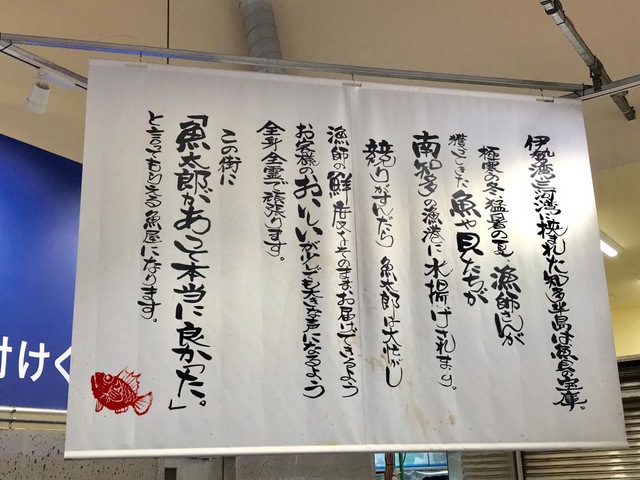 伊勢湾と三河湾に挟まれた知多半島は魚貝の宝庫。
極寒の冬、猛暑の夏、漁師さんが
獲ってきた魚や貝たちが
南知多の漁港に水揚げされます。
競りがすんだら 魚太郎は大忙がし
漁師の鮮度をそのままお届けできるよう
お客様のおいしいが少しでも大きな声になるよう
全身全霊で頑張ります。
この街に
「魚太郎があって本当に良かった。」
と言ってもらえる魚屋になります。
付けく